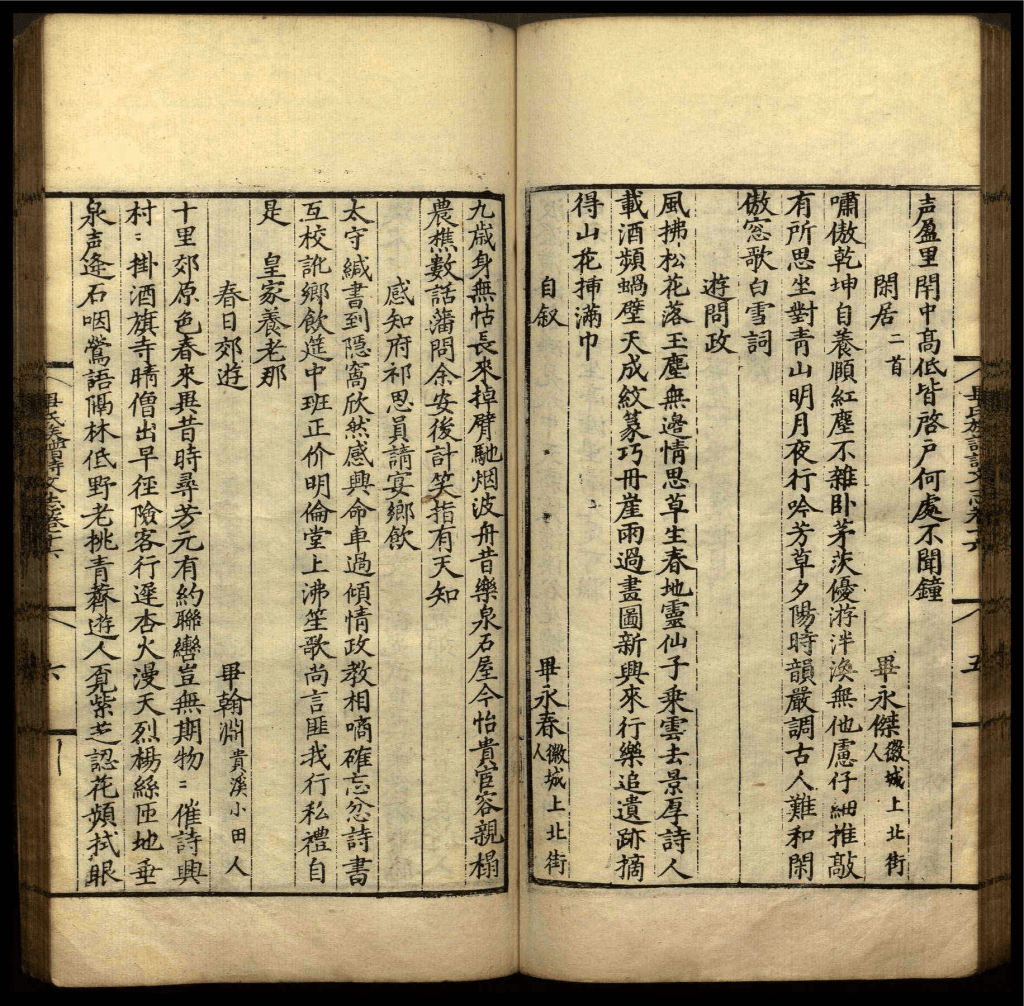 声盈里閈中高低皆啓戶何處不聞鐘
閑居二首 畢永傑徽城上北街人
嘯傲乾坤自養頤紅塵不雜卧茅茨優游泮渙無他慮仔細推敲
有所思坐對青山明月夜行吟芳草夕陽時韻嚴調古人難和閑
傲窓歌白雪詞
遊問政
風拂松花落玉塵無邊情思草生春地靈仙子乘雲去景厚詩人
載酒頻蝸壁天成紋篆巧冊崖雨過畫圖新興來行樂追遺跡摘
得山花挿滿巾
自叙 畢永春徽城上北街人
畢氏族譜詩文志卷十六
五
九歲身無怙長來掉臂馳烟波舟昔樂泉石屋今怡貴官容親榻
農樵數話藩問余安後計笑指有天知
感知府祁思員請宴鄉飲
太守緘書到隱窩欣然感興命車過傾情政教相啇確忘忿詩書
互校訛鄉飲筵中班正价明倫堂上沸笙歌尚言匪我行私禮自
是 皇家養老那
春日郊遊 畢翰淵貴溪小田人
十里郊原色春來異昔時尋芳元有約聯轡豈無期物〻催詩興
村〻掛酒旗寺晴僧出早徑險客行遲杏火漫天烈楊絲匝地垂
泉声逢石咽鶯語隔林低野老挑青薺遊人覓紫芝認花頻拭眼
畢氏族譜詩文志卷十六
六